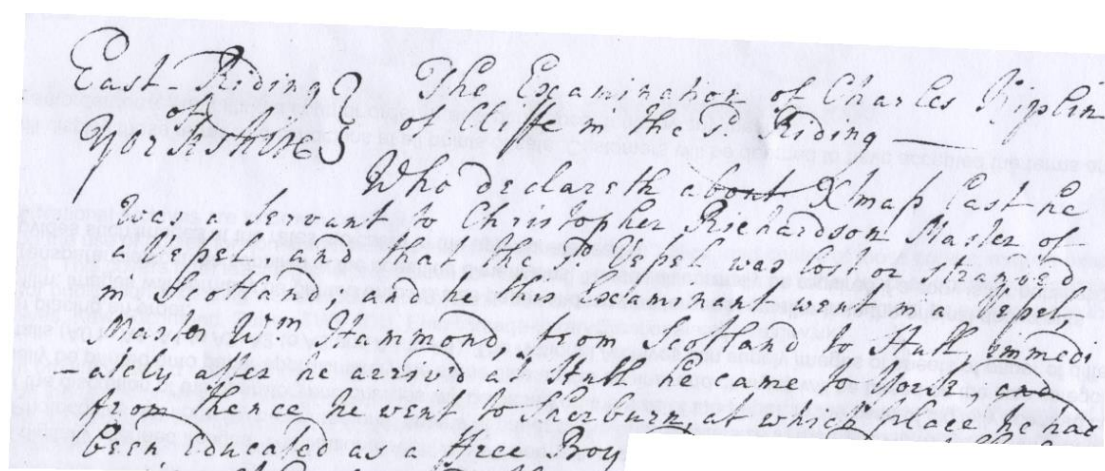 East-Riding } The Examination of Charles Kiplin
of
Yorkshire } of Cliffe in the sd. Riding
Who declareth about Xmass Last he
was a Servant to Christopher Richardson Master of
a Vessel; and that the sd. Vessel was lost or stranded
in Scotland, and he this Examinant went in a Vessel,
Master Wm Hammond, from Scotland to Hull, immedi
-ately after he arriv'd at Hull he came to York, and
from thence he went to Sherburn, at which place he had
been Educated as a Free Boy